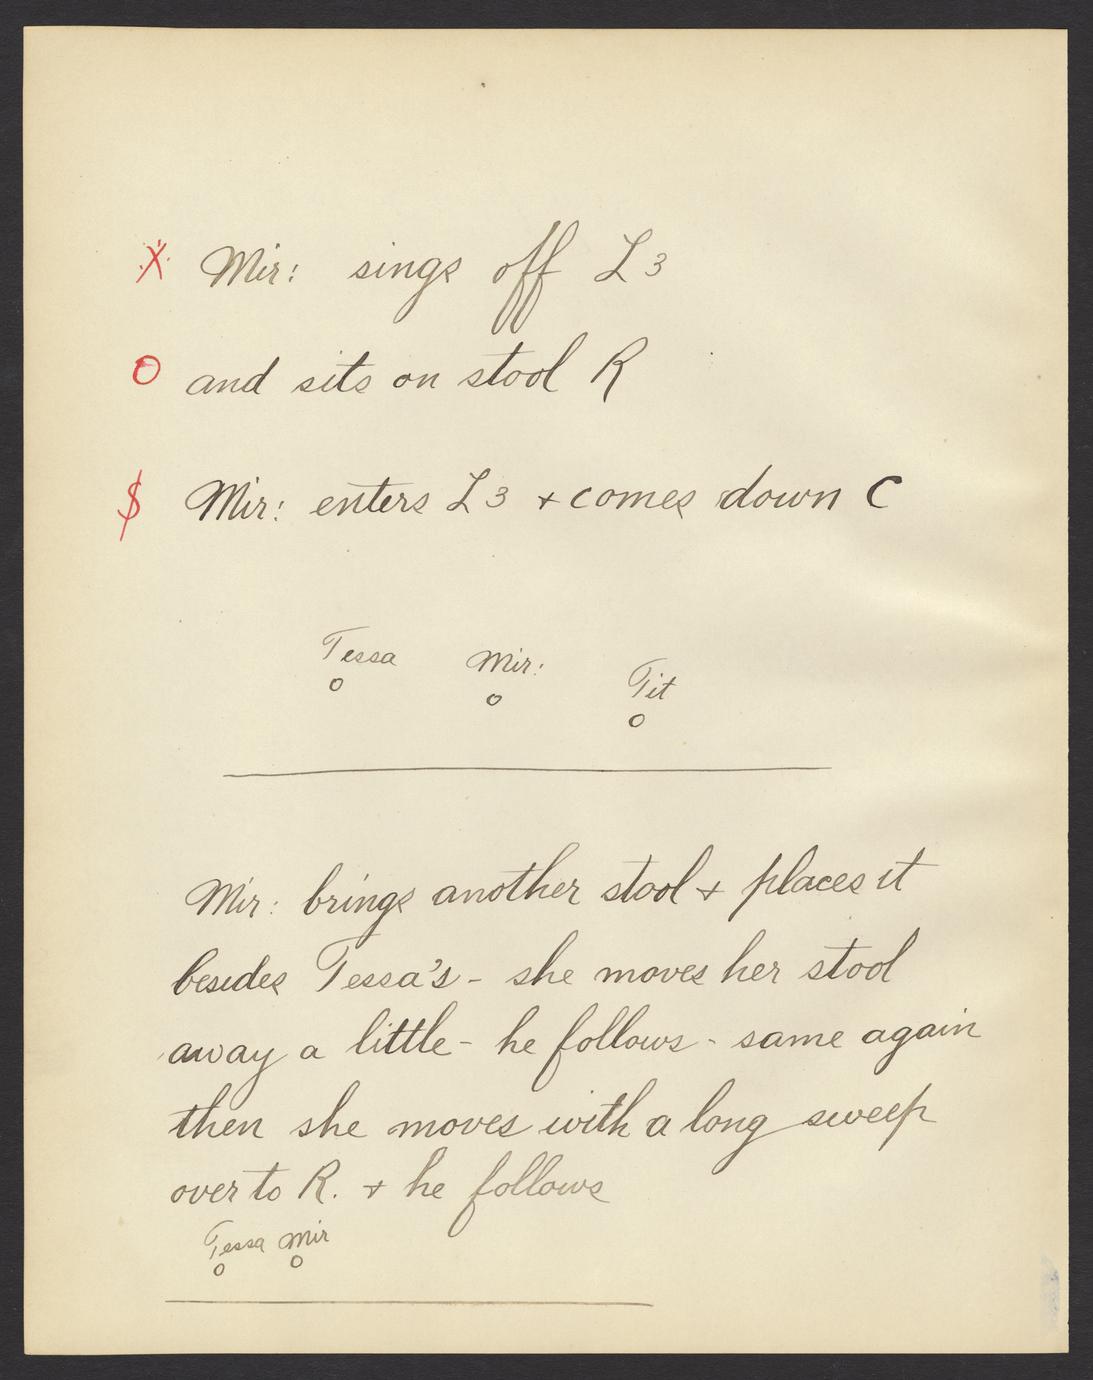 X Mir: sings off L 3
O and sits on stool R
$ Mir: enters L 3 + comes down C
Tessa Mir: Tit
o o o
Mir: brings another stool + places it
besides Tessa's - she moves her stool
away a little - he follows - same again
then she moves with a long sweep
over to R. + he follows
Tessa Mir
o o